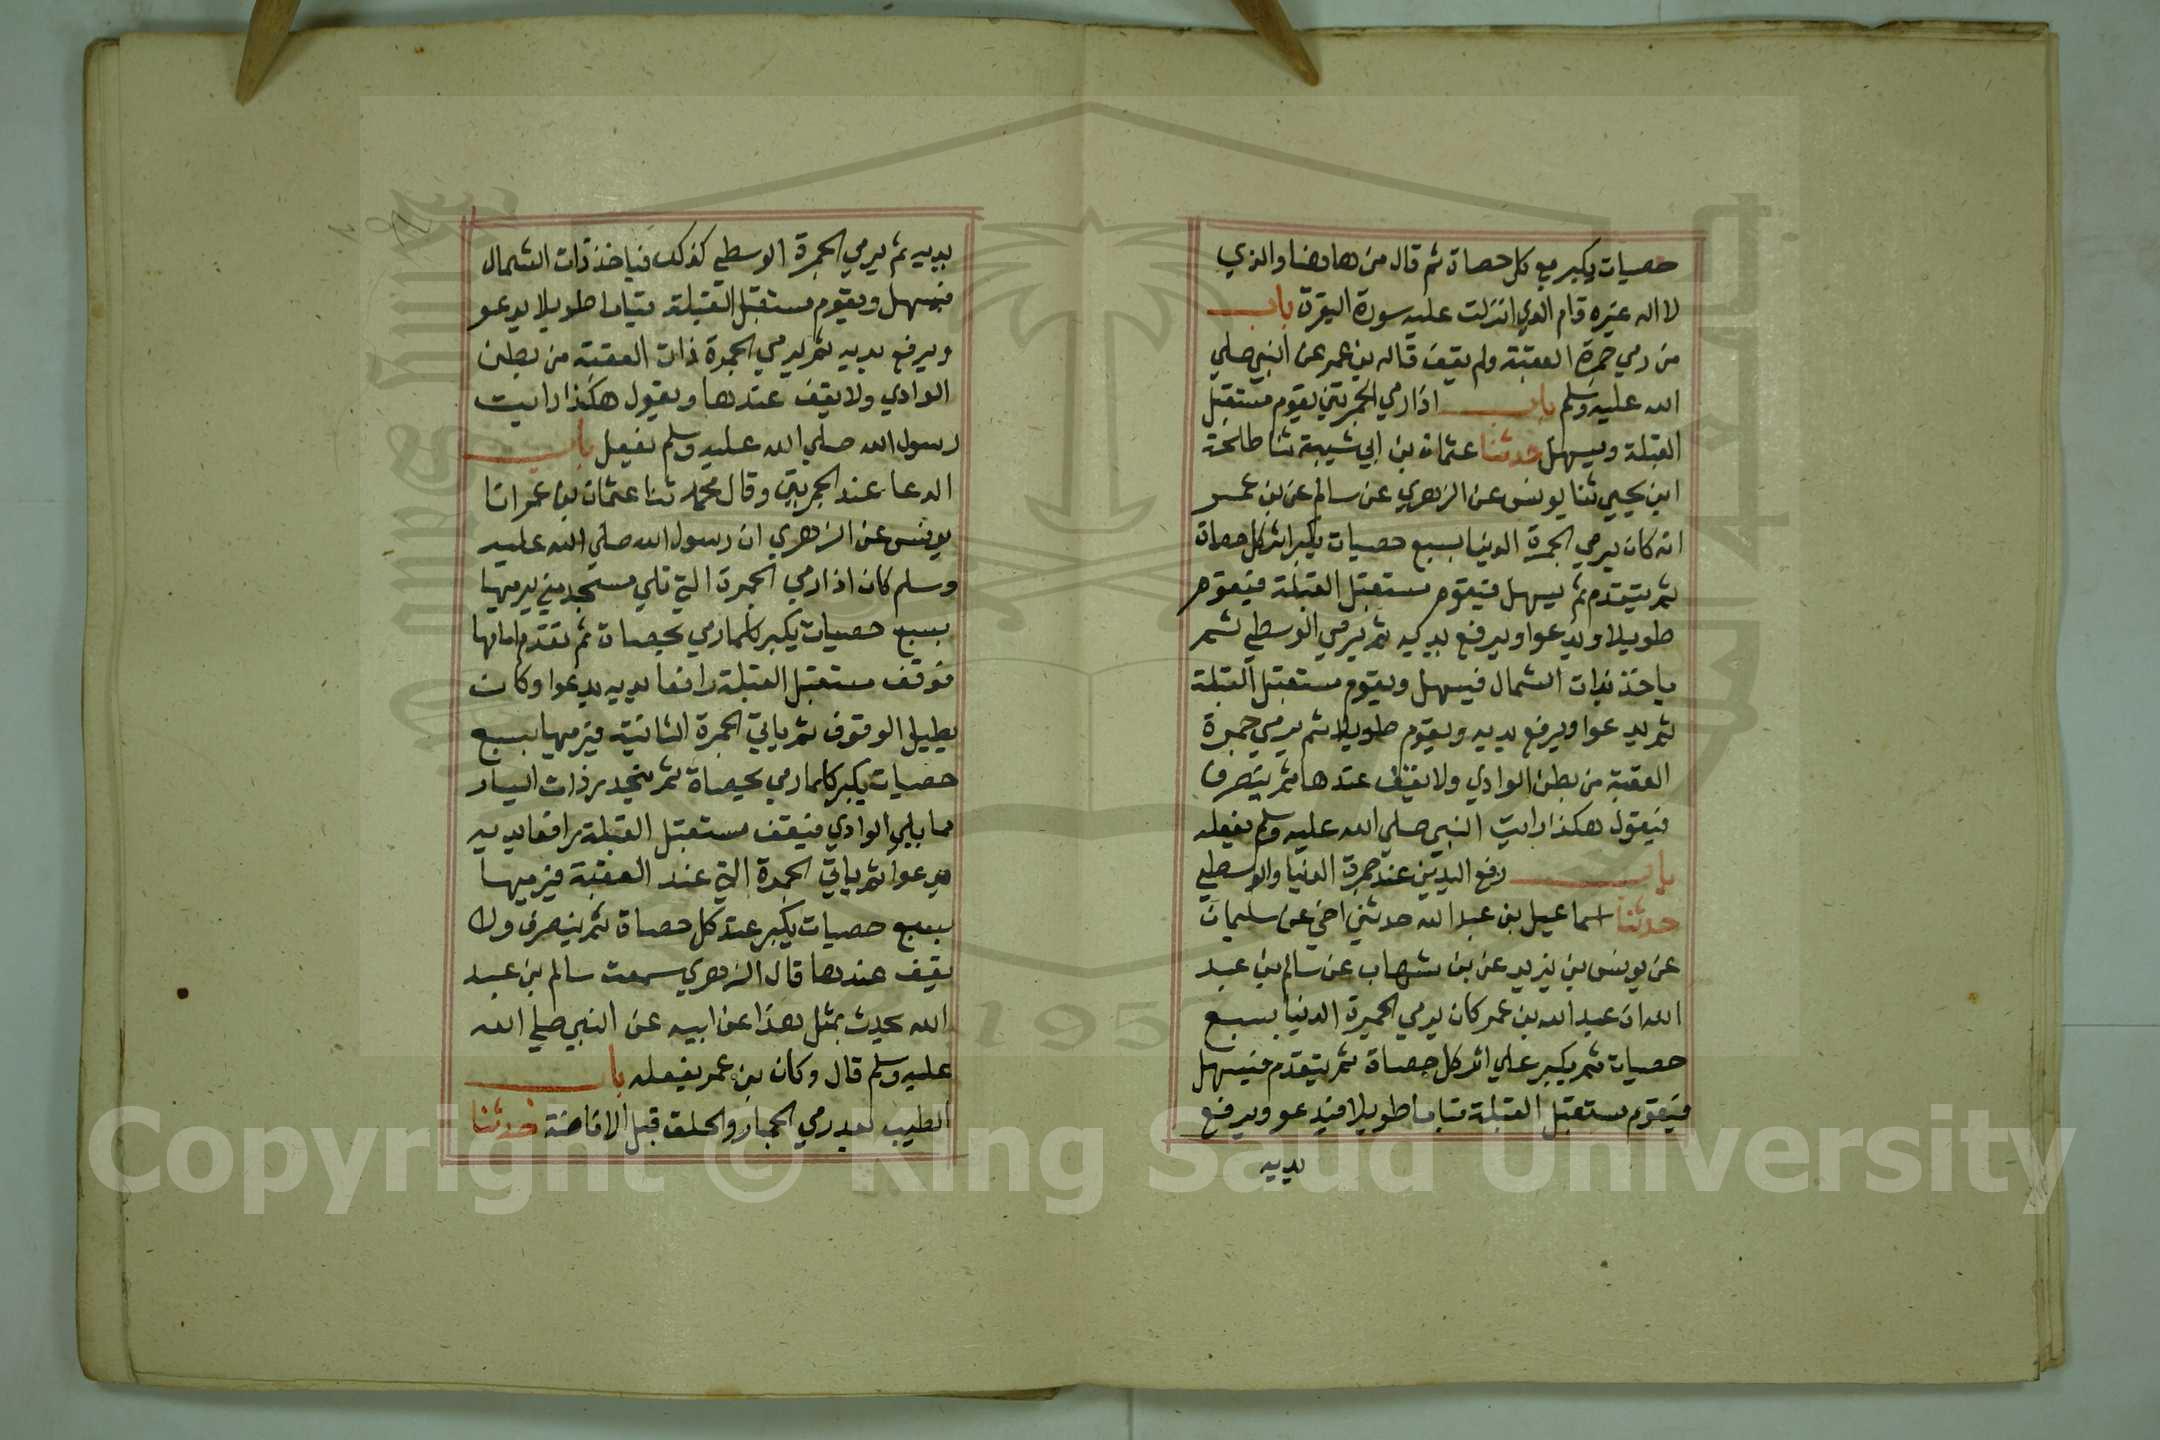 حصيات يكبر مع كل حصاة ثم قال من هاهنا والذي
لا اله غيره قام الذي انزلت عليه سورة البقرة باب
من رمي جمرة العقبة ولم يقف قاله بن عمر عن النبي صلي
الله عليه وسلم باب اذا رمي الجمرتين يقوم مستقبل
القبلة ويسهل حدثنا عثمان بن ابي شيبة ثنا طلحة
ابن يحيي ثنا يونس عن الزهري عن سالم عن بن عمر
انه كان يرمي الجمرة الدنيا بسبع حصيات يكبر اثر كل حصاة
ثم يتقدم ثم يسهل فيقوم مستقبل القبلة فيقوم
طويلا ويدعوا ويرفع يديه ثم يرمي الوسطي ثم
ياخذ بذات الشمال فيسهل ويقوم مستقبل القبلة
ثم يدعوا ويرفع يديه ويقوم طويلا ثم يرمي جمرة
العقبة من بطن الوادي ولا يقف عندها ثم ينصرف
فيقول هكذا رايت النبي صلي الله عليه وسلم يفعله
باب رفع اليدين عند جمرة الدنيا والوسطي
حدثنا اسماعيل بن عبد الله حدثني اخي عن سليمان
عن يونس بن يزيد عن بن شهاب عن سالم بن عبد
الله ان عبد الله بن عمر كان يرمي الجمرة الدنيا بسبع
حصيات ثم يكبر علي اثر كل حصاة ثم يتقدم فيسهل
فيقوم مستقبل القبلة قياما طويلا فيدعو ويرفع
يديه
يديه ثم يرمي الجمرة الوسطي كذلك فياخذ ذات الشمال
فيسهل ويقوم مستقبل القبلة قياما طويلا يدعو
ويرفع يديه ثم يرمي الجمرة ذات العقبة من بطن
الوادي ولا يقف عندها ويقول هكذا رايت
رسول الله صلي الله عليه وسلم يفعل باب
الدعا عند الجمرتين وقال محمد ثنا عثمان بن عمر انا
يونس عن الزهري ان رسول الله صلي الله عليه
وسلم كان اذا رمي الجمرة التي تلي مسجد مني يرميها
بسبع حصيات يكبر كلما رمي بحصاة ثم تقدم امامها
فوقف مستقبل القبلة رافعا يديه يدعوا وكان
يطيل الوقوف ثم ياتي الجمرة الثانية فيرميها بسبع
حصيات يكبر كلما رمي بحصاة ثم ينحدر ذات اليسار
مما يلي الوادي فيقف مستقبل القبلة رافعا يديه
يدعوا ثم ياتي الجمرة التي عند العقبة فيرميها
بسبع حصيات يكبر عند كل حصاة ثم ينصرف ولا
يقف عندها قال الزهري سمعت سالم بن عبد
الله يحدث بمثل هذا عن ابيه عن النبي صلي الله
عليه وسلم قال وكان بن عمر يفعله باب
الطيب بعد رمي الجمار والحلق قبل الافاضة حدثنا
1957
Copyright © King Saud University